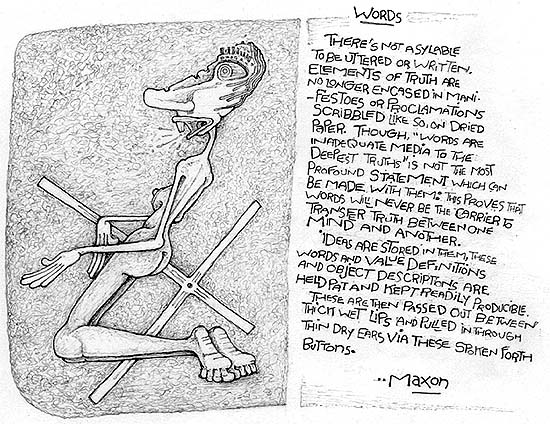 WORDS
THERE'S NOT A SYLABLE
TO BE UTTERED OR WRITTEN.
ELEMENTS OF TRUTH ARE
NO LONGER ENCASED IN MANI-
-FESTOES OR PROCLAMATIONS
SCRIBBLED LIKE SO, ON DRIED
PAPER. THOUGH, "WORDS ARE
INADEQUATE MEDIA TO THE
DEEPEST TRUTHS" IS NOT THE MOST
PROFOUND STATEMENT WHICH CAN
BE MADE WITH THEM. THIS PROVES THAT
WORDS WILL NEVER BE THE CARRIER TO
TRANSFER TRUTH BETWEEN ONE
MIND AND ANOTHER.
IDEAS ARE STORED IN THEM, THESE
WORDS AND VALUE DEFINITIONS
AND OBJECT DESCRIPTIONS ARE
HELD PAT AND KEPT READILY PRODUCIBLE.
THESE ARE THEN PASSED OUT BETWEEN
THICK WET LIPS AND PULLED IN THROUGH
THIN DRY EARS VIA THESE SPOKEN FORTH
BUTTONS.
--MAXON